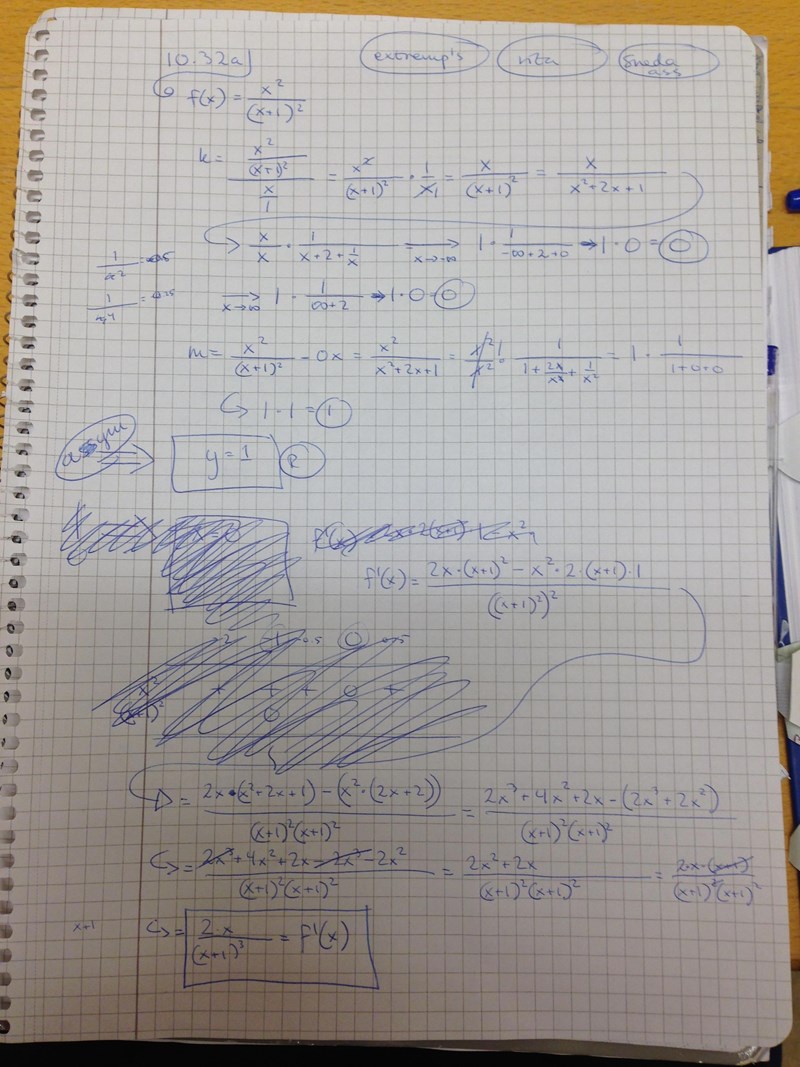 10.32a) extremp's rita Sneda ass
f(x) = x²/(x+1)²
k = (x²/(x+1)²)/(x/1) = x²/(x+1)² · 1/x = x/(x+1)² = x/(x²+2x+1)
x/x · 1/(x+2+1/x) → x→-∞ 1 · 1/(-∞+2+0) → 1·0 = 0
x→∞ 1 · 1/(∞+2) → 1·0 = 0
m = x²/(x+1)² - 0x = x²/(x²+2x+1) = x²/x² · 1/(1+2x/x²+1/x²) = 1 · 1/(1+0+0)
↳ 1·1 = 1
y = 1
f'(x) = (2x·(x+1)² - x²·2·(x+1)·1)/((x+1)²)²
= (2x·(x²+2x+1) - (x²·(2x+2)))/((x+1)²(x+1)²) = (2x³+4x²+2x-(2x³+2x²))/((x+1)²(x+1)²)
↳ = (2x³+4x²+2x-2x³-2x²)/((x+1)²(x+1)²) = (2x²+2x)/((x+1)²(x+1)²) = (2·x·(x+1))/((x+1)²(x+1)²)
x+1 ↳ = 2·x/(x+1)³ = f'(x)